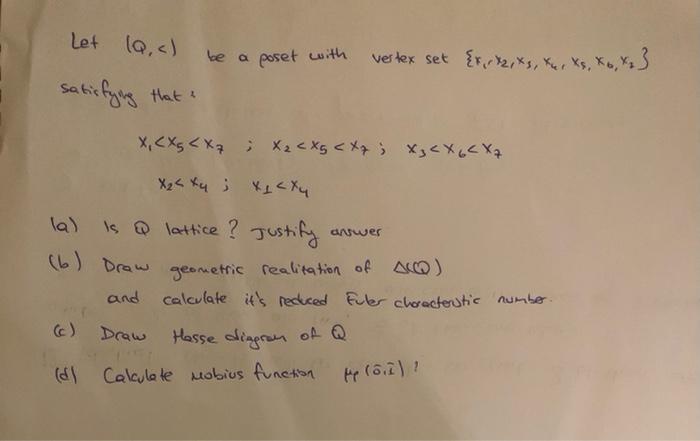 Let (Q,<) be a poset with vertex set {x₁, x₂, x₃, x₄, x₅, x₆, x₇}
satisfying that :
x₁<x₅<x₇ ; x₂<x₅<x₇ ; x₃<x₆<x₇
x₂<x₄ ; x₁<x₄
(a) Is Q lattice ? Justify answer
(b) Draw geometric realitation of Δ(Q)
and calculate it's reduced Euler characteristic number.
(c) Draw Hasse diagram of Q
(d) Calculate Mobius function μₚ(ô,î) ?